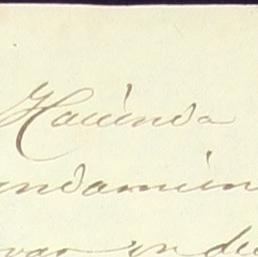 Hacienda
ndamien
var en du